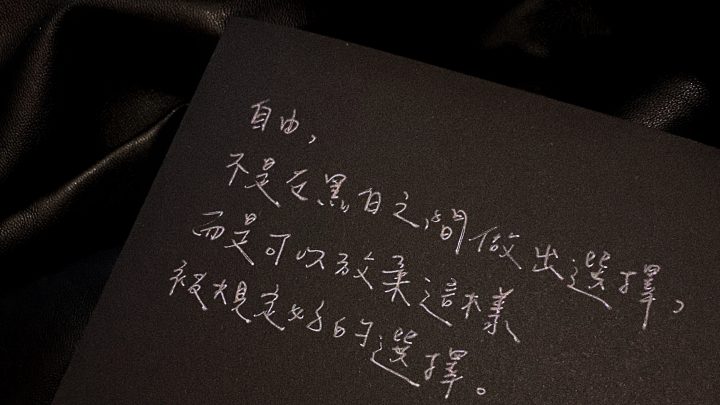 自由，
不是在黑白之間做出選擇，
而是可以放棄這樣
被規定好的選擇。